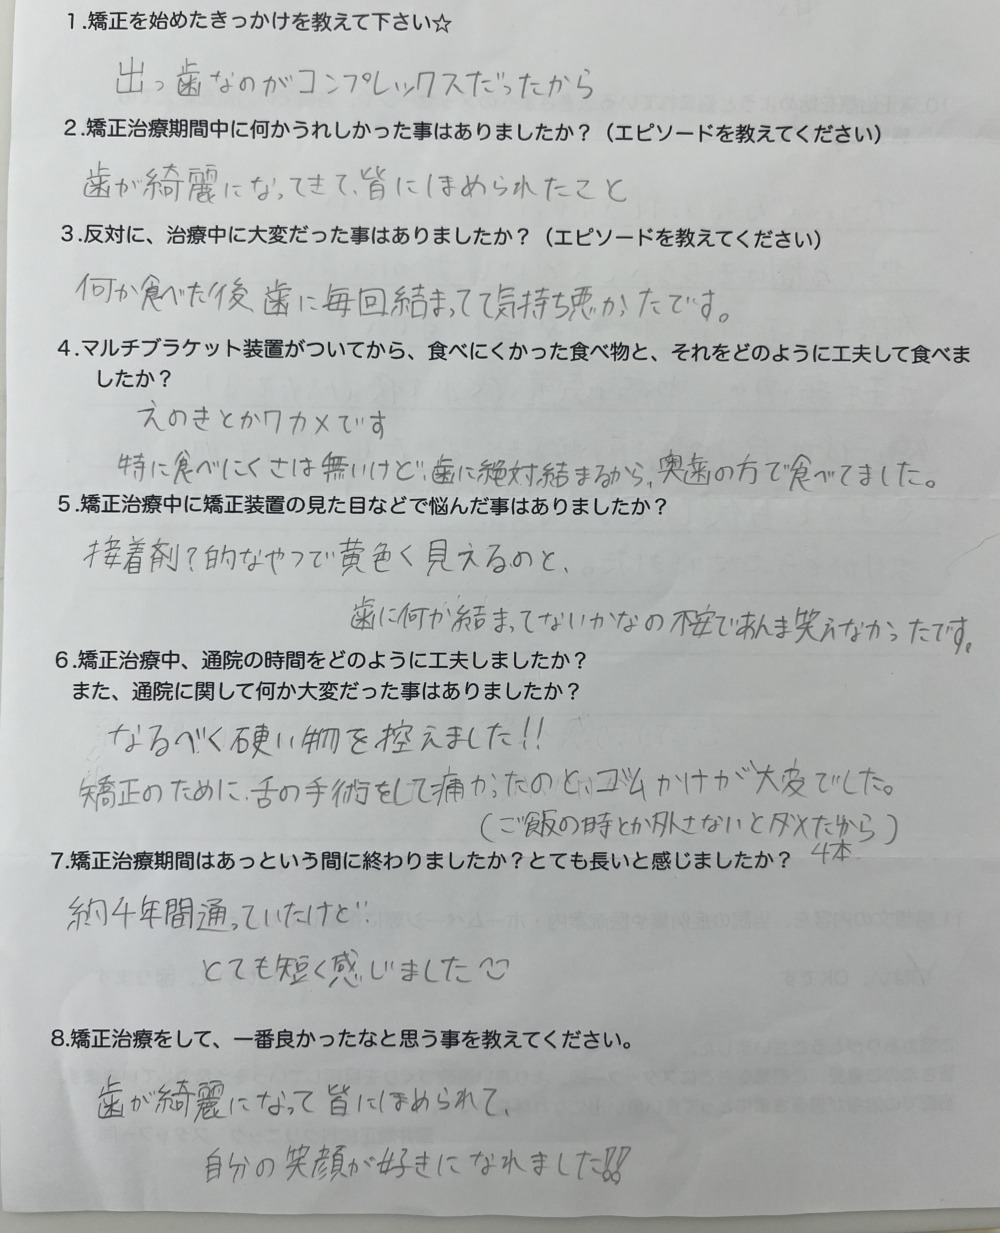 １.矯正を始めたきっかけを教えて下さい☆
出っ歯なのがコンプレックスだったから
２.矯正治療期間中に何かうれしかった事はありましたか？（エピソードを教えてください）
歯が綺麗になってきて、皆にほめられたこと
３.反対に、治療中に大変だった事はありましたか？（エピソードを教えてください）
何か食べた後 歯に毎回結まってて気持ち悪かったです。
４.マルチブラケット装置がついてから、食べにくかった食べ物と、それをどのように工夫して食べま
したか？
えのきとかワカメです
特に食べにくさは無いけど、歯に絶対結まるから、奥歯の方で食べてました。
５.矯正治療中に矯正装置の見た目などで悩んだ事はありましたか？
接着剤？的なやつで黄色く見えるのと、
歯に何か結まってないかなの不安であんま笑えなかったです。
６.矯正治療中、通院の時間をどのように工夫しましたか？
また、通院に関して何か大変だった事はありましたか？
なるべく硬い物を控えました!!
矯正のために、舌の手術をして痛かったのと、ゴムかけが大変でした。
（ご飯の時とか外さないとダメだから）
4本
7.矯正治療期間はあっという間に終わりましたか？とても長いと感じましたか？
約4年間通っていたけど
とても短く感じました
8.矯正治療をして、一番良かったなと思う事を教えてください。
歯が綺麗になって皆にほめられて、
自分の笑顔が好きになれました!!